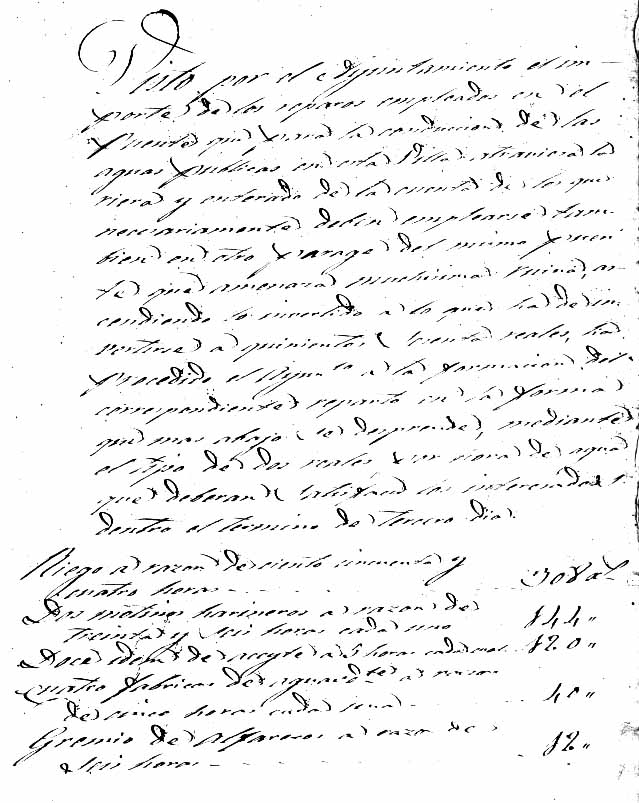 Visto por el Ajuntamiento el im-
porte de los reparos empleados en el
Puente que para la conduccion de las
aguas publicas en esta Villa atraviesa la
riera y enterado de la cuenta de los que
necesariamente deben emplearse tam-
bien en otro parage del mismo puen
te que amenaza muchisima ruina, as-
cendiendo lo invertido a lo que ha de in-
vertirse a quinientos setenta reales, ha
procedido el Ayunto a la formacion del
correspondiente reparto en la forma
que mas abajo se desprende, mediante
el tipo de dos reales por hora de agua
que deberan satisfacer los interesados
dentro el termino de tercero dia.
Riego a razon de ciento cincuenta y
cuatro horas - 308 rs
Dos molinos harineros a razon de
treinta y seis horas cada uno 144 "
Doce idem de aceyte a 5 horas cada uno 120 "
Cuatro fabricas de aguardte a razon
de cinco horas cada una - 40 "
Gremio de Alfareros a razon de
seis horas - 12 "